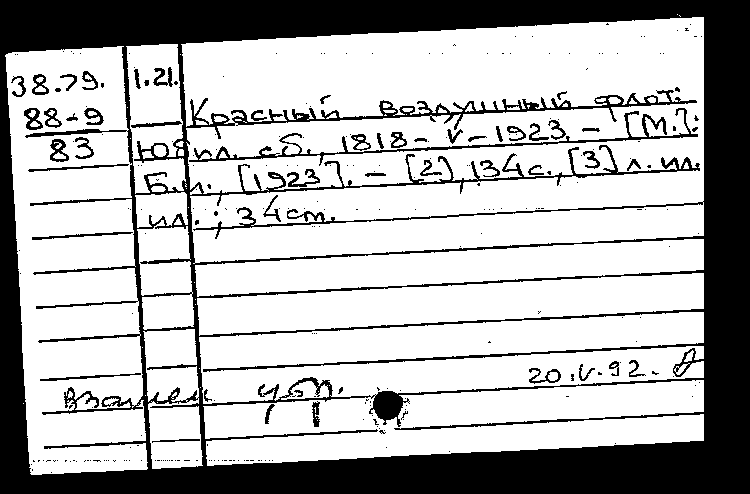 38.79. 1.21.
88-9 Красный воздушный флот:
83 Юбил. сб., 1818-V-1923. - [М.]:
Б.и., [1923]. - [2], 134с., [3] л. ил.
ил.; 34см.
20.V.92.
Взамен